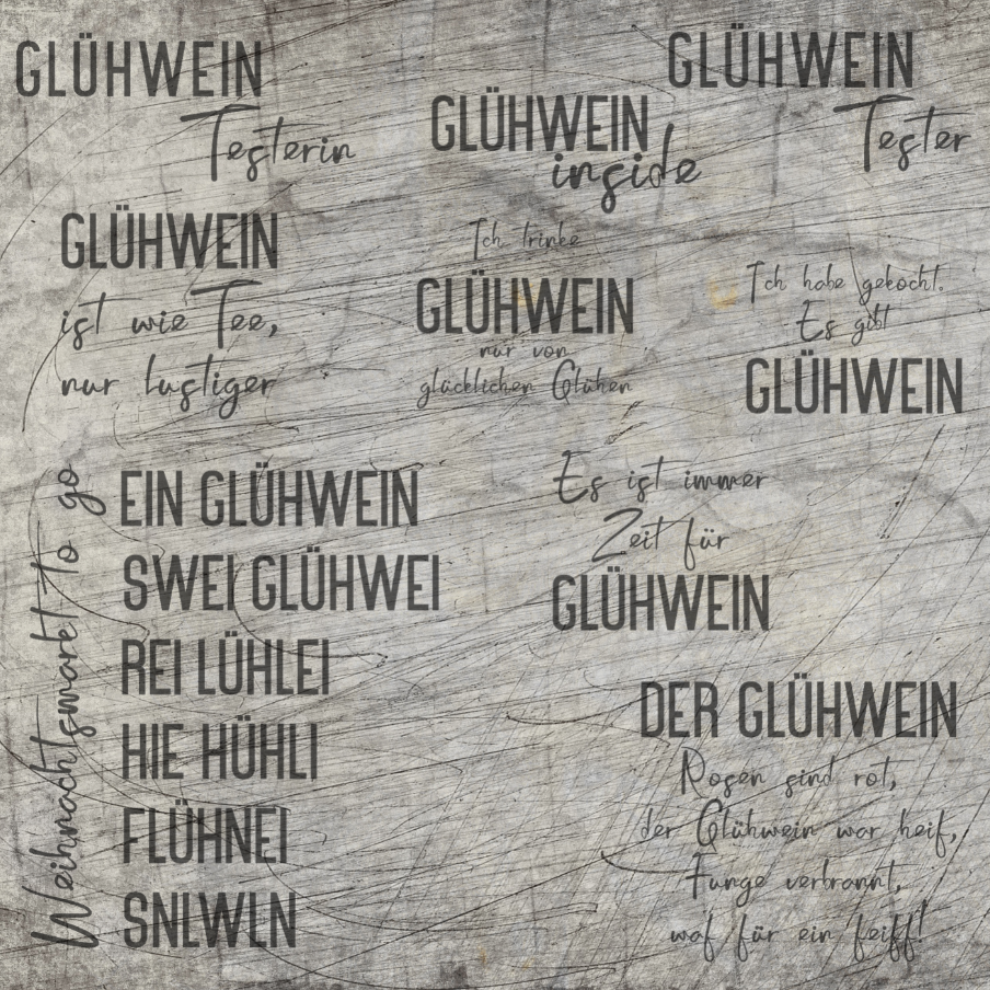 GLÜHWEIN
Testerin
GLÜHWEIN
inside
GLÜHWEIN
Tester
GLÜHWEIN
ist wie Tee,
nur lustiger
Ich trinke
GLÜHWEIN
nur von
glücklichen Glühen
Ich habe gekocht.
Es gibt
GLÜHWEIN
Weihnachtsmarkt to go
EIN GLÜHWEIN
SWEI GLÜHWEI
REI LÜHLEI
HIE HÜHLI
FLÜHNEI
SNLWLN
Es ist immer
Zeit für
GLÜHWEIN
DER GLÜHWEIN
Rosen sind rot,
der Glühwein war heif,
Funge verbrannt,
waf für ein feiff!